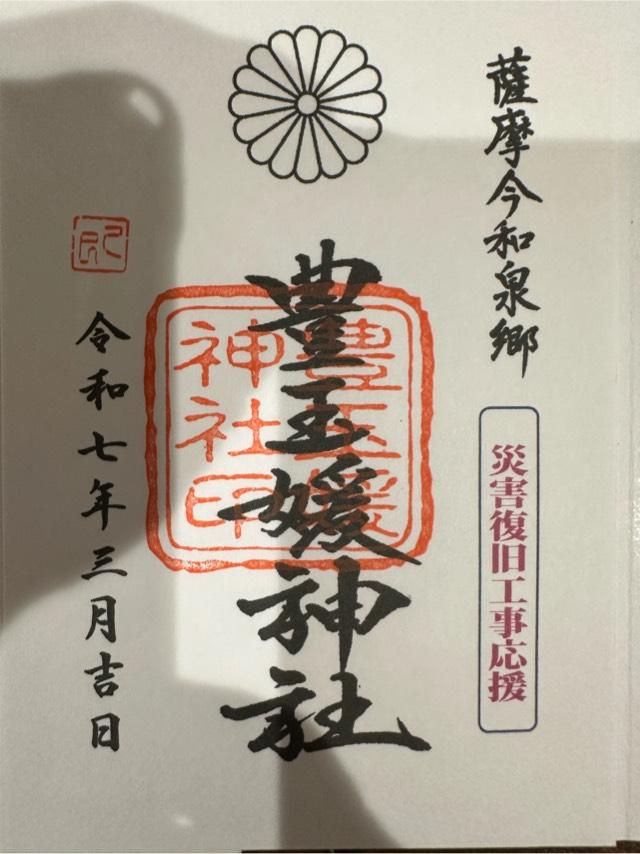 薩摩今和泉郷
災害復旧工事応援
豊玉媛神社
豊玉媛
神社印
令和七年三月吉日